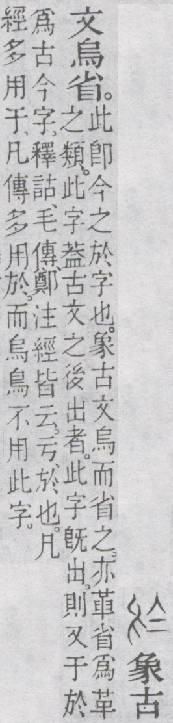 象古
文烏省。
此卽今之於字也。象古文烏而省之。亦革省爲革
之類。此字葢古文之後出者。此字旣出。則又于於
爲古今字。釋詁、毛傳、鄭注經皆云。亏、於也。凡
經多用于。凡傳多用於。而烏鳥不用此字。